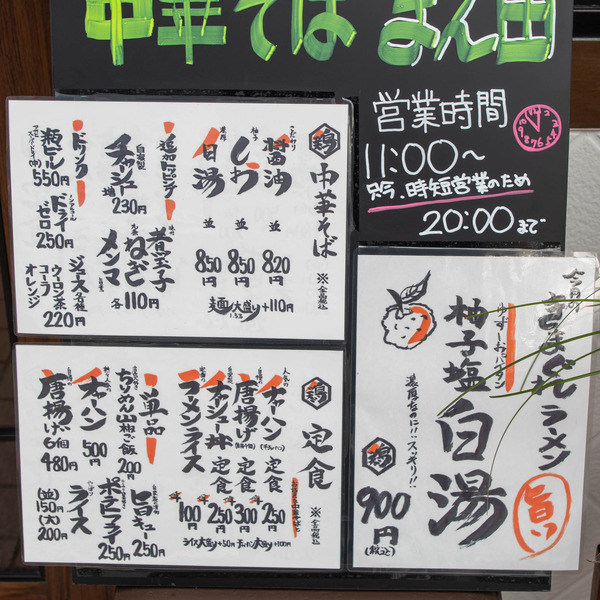 中華そば まん田
営業時間
11:00～
只今、時短営業のため
20:00まで
鶏 中華そば ※全品税込
醤油 並 820円
しお 並 850円
白湯 並 850円
麺大盛り 1.5玉 +110円
追加トッピング
自家製 チャーシュー 230円
煮玉子
ねぎ
メンマ
各110円
ドリンク
瓶ビール 550円
ドライゼロ 250円
ジュース各種
コーラ
ウーロン茶
オレンジ
220円
鶏 定食 ※全品税込
人気の チャーハン 定食 250円
唐揚げ 定食 300円
チャーシュー丼 定食 250円
ラーメンライス 100円
ライス大盛り+50円 チャーハン大盛り+100円
単品
ちりめん山椒ご飯 200円
チャーハン 500円
唐揚げ 6個 480円
旨キュー 250円
ポテトフライ 250円
ライス
(並)150円
(大)200円
今月の
きまぐれラーメン
旨い
ゆずしおぱいたん
柚子塩白湯
濃厚なのに!!スッキリ!!
鶏 900円
(税込)